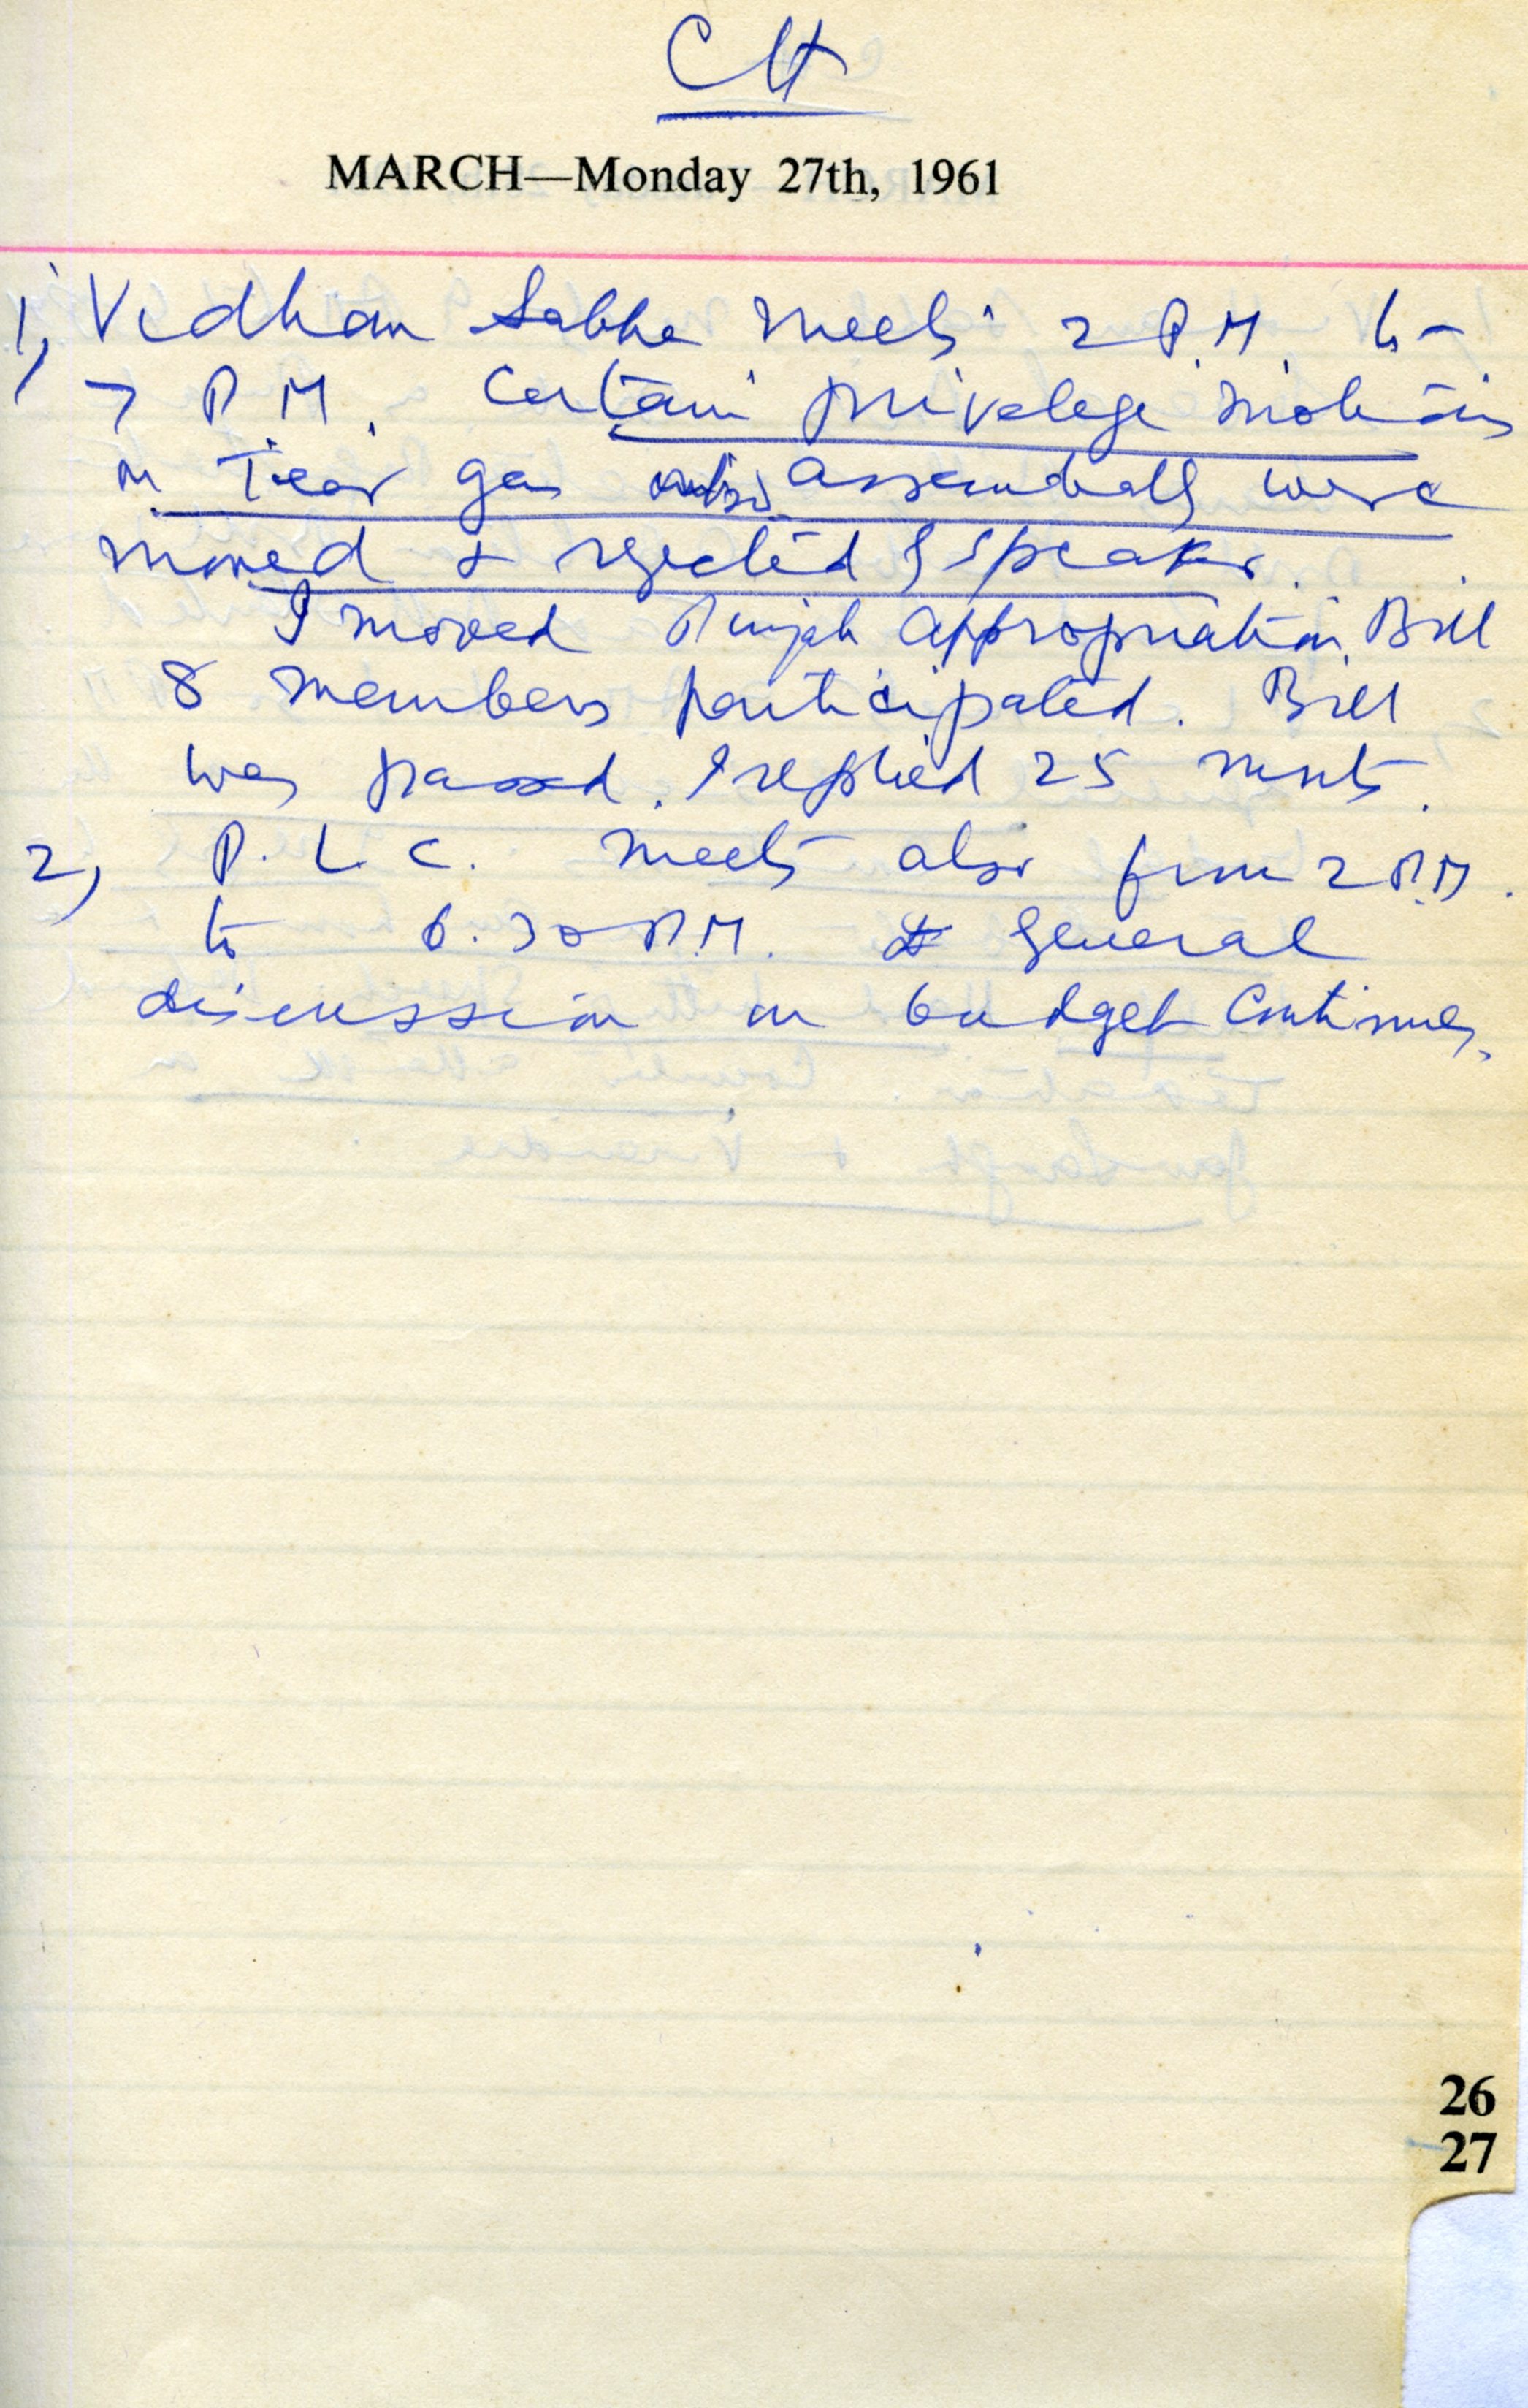 CH
MARCH—Monday 27th, 1961
1, Vidhan Sabha meets 2 P.M. to
7 P.M. Certain privelege motions
on Tear gas assembally were
moved & rejected by speaker.
I moved Punjab appropriation Bill
8 members participated. Bill
was passed. I replied 25 munts.
2, P. L. C. meets also from 2 P.M.
to 6.30 P.M. general
discussion on budget continues.
26
27